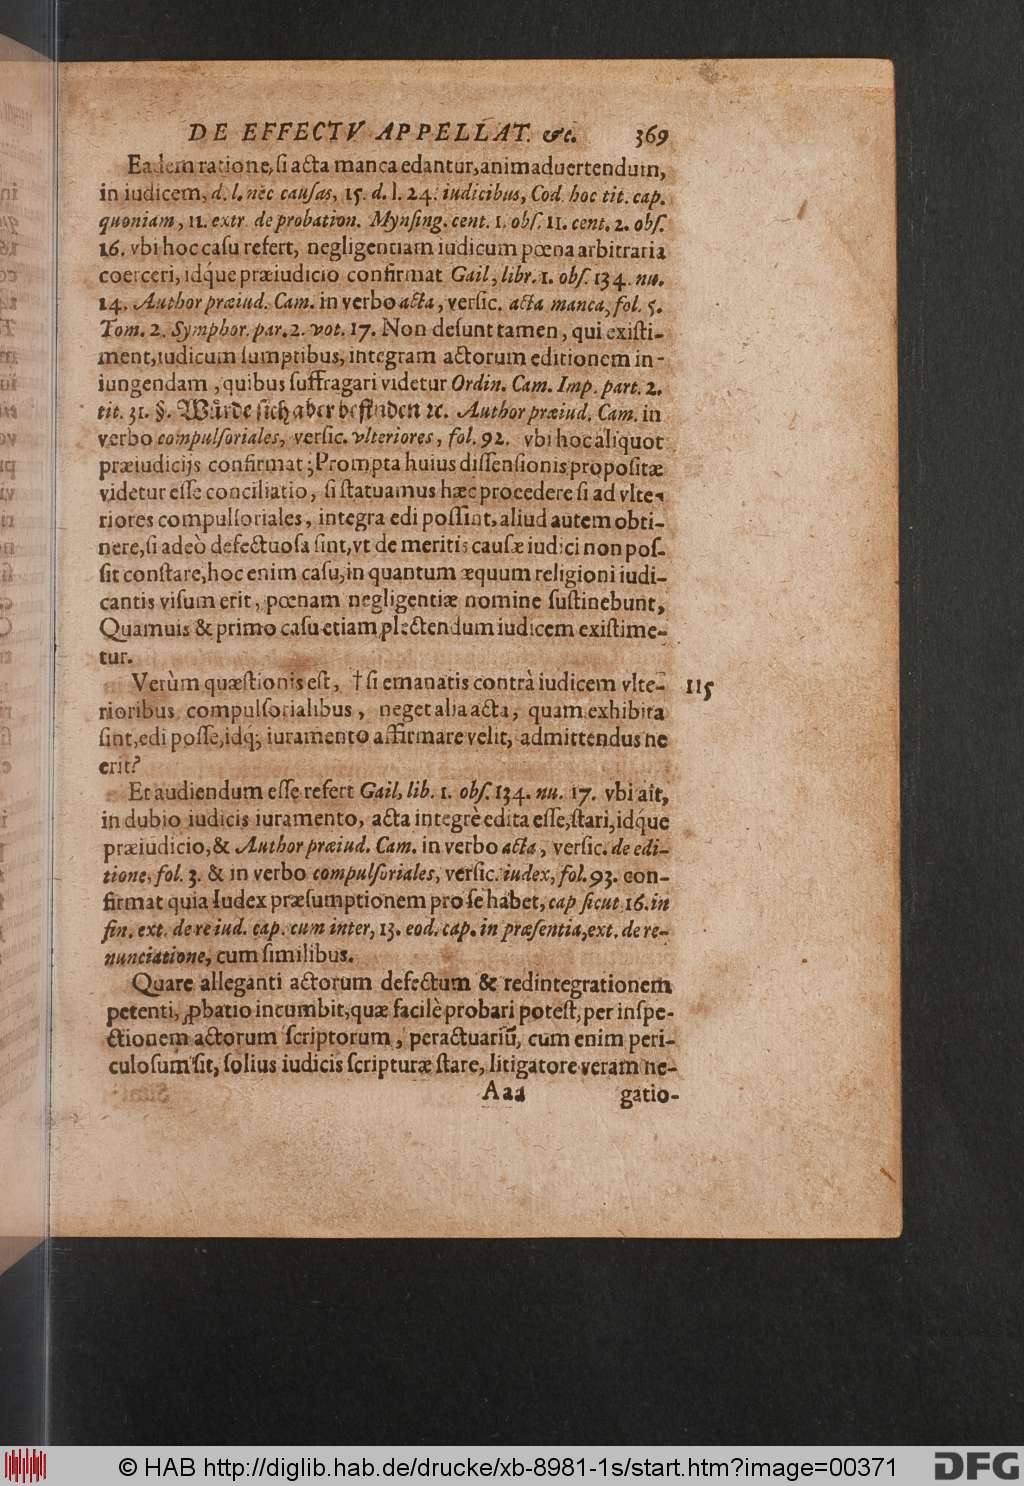 DE EFFECTV APPELLAT. &c. 369
Eadem ratione, ſi acta manca edantur, animaduertendum,
in iudicem, d. l. nec cauſas, 15. d. l. 24. iudicibus, Cod. hoc tit. cap.
quoniam, 11. extr. de probation. Mynſing. cent. 1. obſ. 11. cent. 2. obſ.
16. vbi hoc caſu refert, negligentiam iudicum pœna arbitraria
coerceri, idque præiudicio confirmat Gail, libr. 1. obſ. 134. nu.
14. Author præiud. Cam. in verbo acta, verſic. acta manca, fol. 5.
Tom. 2. Symphor. par. 2. vot. 17. Non deſunt tamen, qui exiſti-
ment, iudicum ſumptibus, integram actorum editionem in-
iungendam, quibus ſuffragari videtur Ordin. Cam. Imp. part. 2.
tit. 31. §. Würde ſich aber befinden ꝛc. Author præiud. Cam. in
verbo compulſoriales, verſic. vlteriores, fol. 92. vbi hoc aliquot
præiudicijs confirmat; Prompta huius diſſenſionis propoſitæ
videtur eſſe conciliatio, ſi ſtatuamus hæc procedere ſi ad vlte-
riores compulſoriales, integra edi poſſint, aliud autem obti-
nere, ſi adeò defectuoſa ſint, vt de meritis cauſæ iudici non poſ-
ſit conſtare, hoc enim caſu, in quantum æquum religioni iudi-
cantis viſum erit, pœnam negligentiæ nomine ſuſtinebunt,
Quamuis & primo caſu etiam plectendum iudicem exiſtime-
tur.
Verùm quæſtionis eſt, † ſi emanatis contrà iudicem vlte- 115
rioribus compulſorialibus, neget alia acta, quam exhibita
ſint, edi poſſe, idq; iuramento affirmare velit, admittendus ne
erit?
Et audiendum eſſe refert Gail, lib. 1. obſ. 134. nu. 17. vbi ait,
in dubio iudicis iuramento, acta integrè edita eſſe, ſtari, idque
præiudicio, & Author præiud. Cam. in verbo acta, verſic. de edi-
tione, fol. 3. & in verbo compulſoriales, verſic. iudex, fol. 93. con-
firmat quia Iudex præſumptionem pro ſe habet, cap ſicut 16. in
fin. ext. de re iud. cap. cum inter, 13. eod. cap. in præſentia, ext. de re-
nunciatione, cum ſimilibus.
Quare alleganti actorum defectum & redintegrationem
petenti, ꝓbatio incumbit, quæ facilè probari poteſt, per inſpe-
ctionem actorum ſcriptorum, per actuariũ, cum enim peri-
culoſum ſit, ſolius iudicis ſcripturæ ſtare, litigatore veram ne-
Aaa gatio-
© HAB http://diglib.hab.de/drucke/xb-8981-1s/start.htm?image=00371 DFG